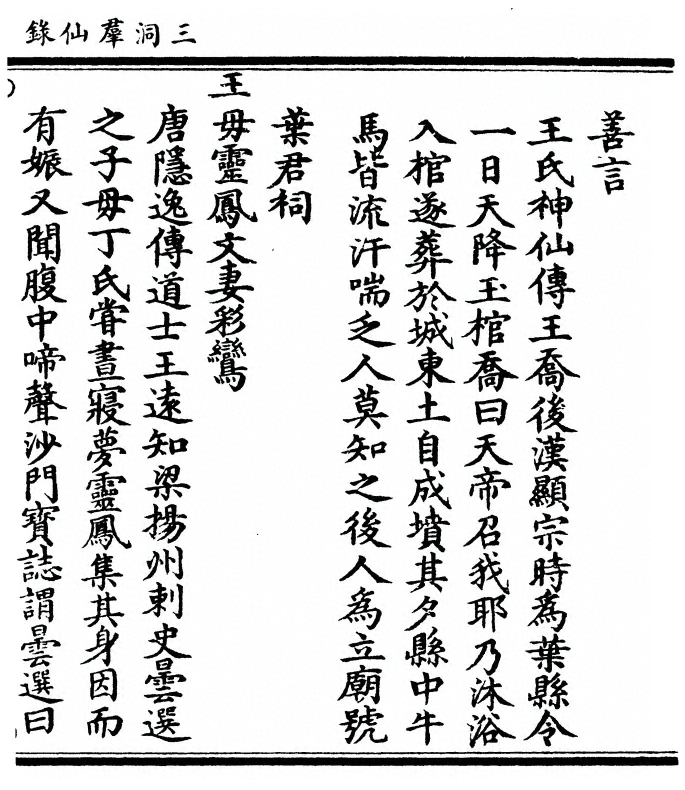 三洞羣仙錄
善言
王氏神仙傳王喬後漢顯宗時為葉縣令
一日天降玉棺喬曰天帝召我耶乃沐浴
入棺遂葬於城東土自成墳其夕縣中牛
馬皆流汗喘乏人莫知之後人為立廟號
葉君祠
王母靈鳳文妻彩鸞
唐隱逸傳道士王遠知梁揚州刺史曇選
之子母丁氏嘗晝寢夢靈鳳集其身因而
有娠又聞腹中啼聲沙門寶誌謂曇選曰